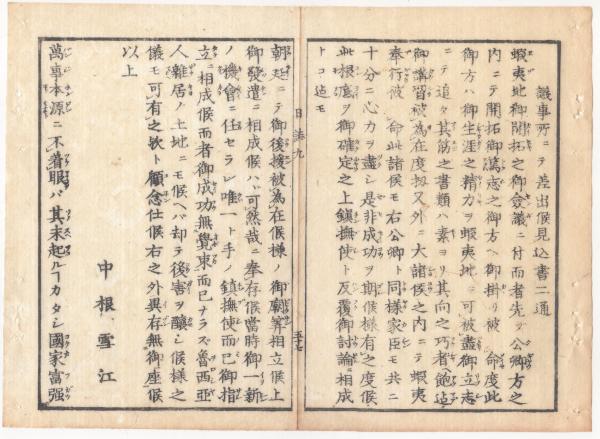 議事所ニテ差出候見込書二通
蝦夷地御開拓之御僉議ニ付而者先ヅ公卿方之
内ニテ開拓御篤志之御方ヘ御掛リ被 命度此
御方ハ御生涯之精力ヲ蝦夷地ニ可被盡御立志
ニテ追々其筋之書類ハ素ヨリ其向之巧者飽迠
御講習被為在度扨又外ニ大諸侯之内ニテ蝦夷
奉行被 命此諸侯モ右公卿ト同様家臣モ共ニ
十分ニ心力ヲ盡シ是非成功ヲ期候様有之度候
此根底ヲ御確定之上鎮撫使ト反覆御討論ニ相成
トコ迠モ
日誌九
五十七
朝廷ニテ御後援被為在候様ノ御廟算相立候上
御發遣ニ相成候ハヾ可然哉ニ奉存候當時御一新
ノ機會ニ任セラレ唯一ト手ノ鎮撫使而已御指
立ニ相成候而者御成功無覺束而已ナラズ魯西亜
人雜居ノ土地ニモ候ヘバ却テ後害ヲ釀シ候様之
儀モ可有之欤ト顧念仕候右之外異存無御座候
以上
中根雪江
萬事本源ニ不着眼バ其末起ルヿカタシ國家富强